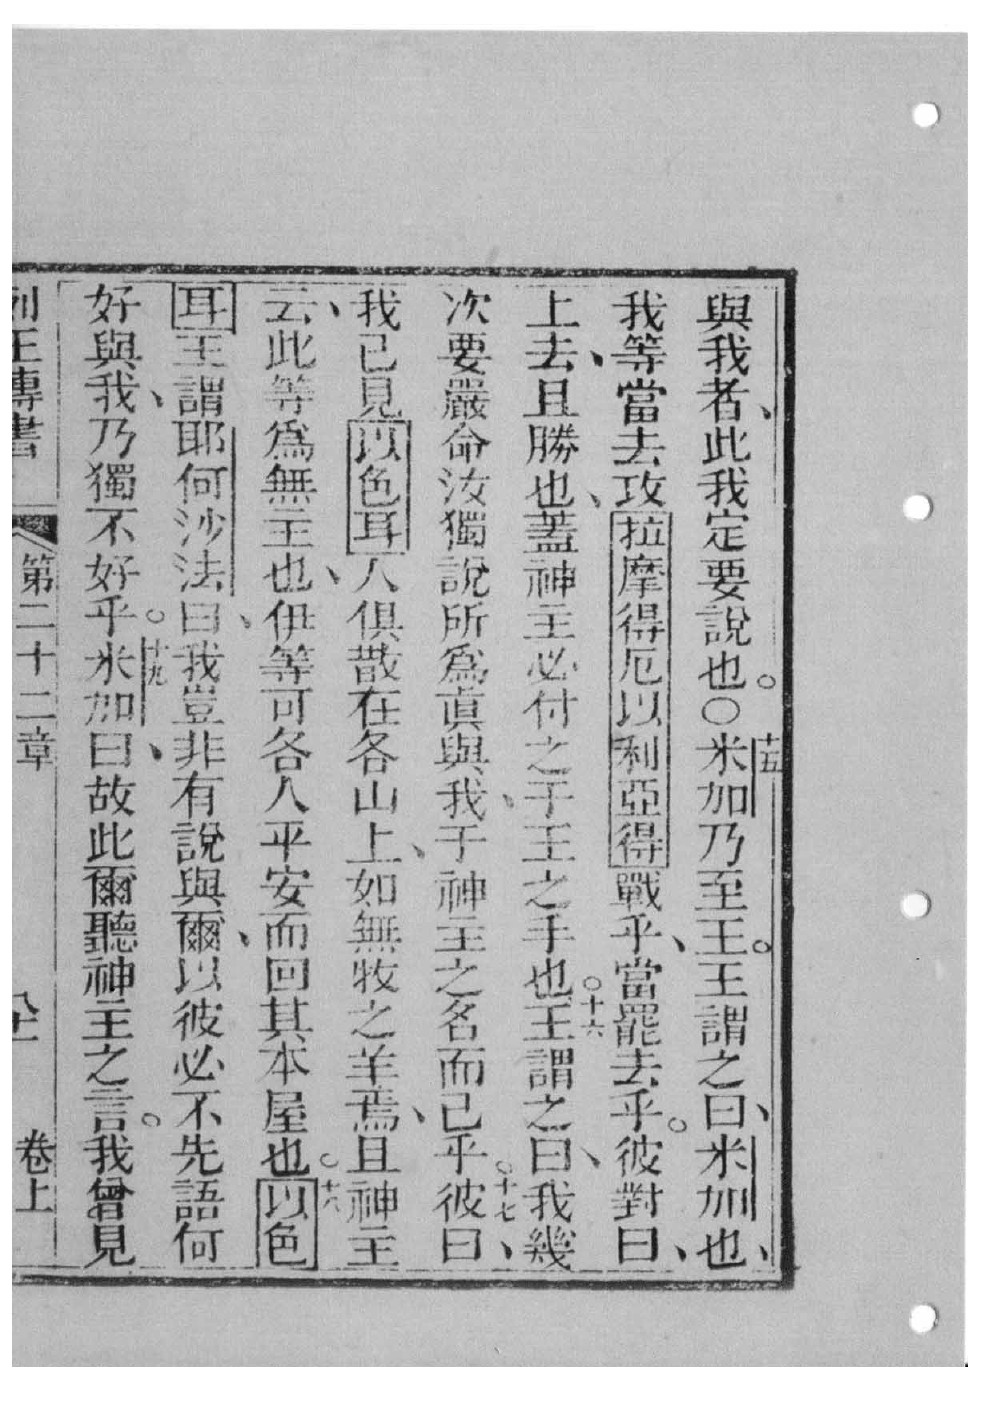 與我者、此我定要說也。○十五米加乃至王。王謂之曰、米加也、
我等當去攻拉摩得厄以利亞得戰乎、當罷去乎。彼對曰、
上去、且勝也、蓋神主必付之于王之手也。十六王謂之曰、我幾
次要嚴命汝獨說所爲眞與我、于神主之名而已乎。十七彼曰、
我已見以色耳人俱散在各山上、如無牧之羊焉、且神主
云、此等爲無主也、伊等可各人平安而回其本屋也。十八以色
耳王謂耶何沙法曰、我豈非有說與爾、以彼必不先語何
好與我、乃獨不好乎。十九米加曰、故此爾聽神主之言。我曾見
列王傳書 第二十二章 卷上